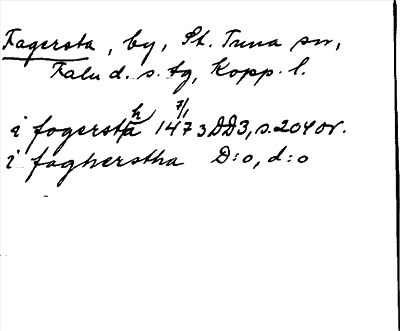 Fagersta, by, St. Tuna sn,
Falu d. s. tg, Kopp. l.
i fogerstha 7/1 1473 DD3, s. 204 or.
i fagherstha D:o, d:o